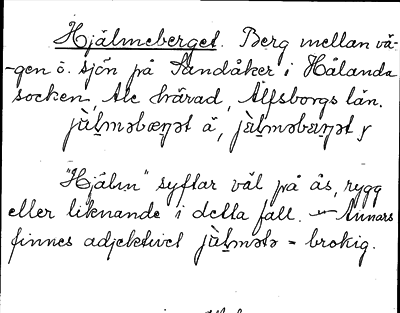 Hjälmeberget. Berg mellan vä-
-gen o. sjön på Sandåker i Hålanda
socken, Ale härad, Älfsborgs län.
"Hjälm" syftar väl på ås, rygg
eller liknande i detta fall. — Annars
finnes adjektivet = brokig.